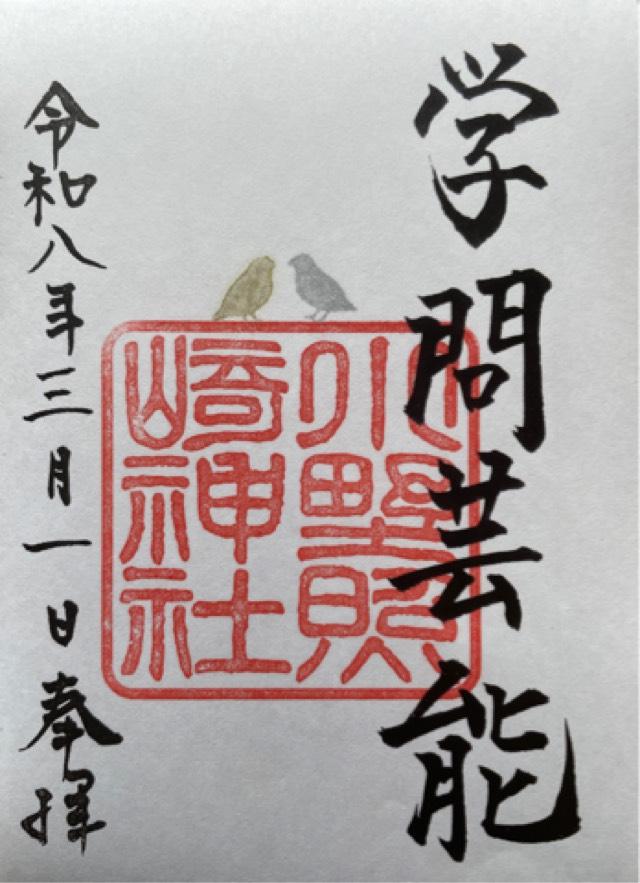 学問芸能
小野照
崎神社
令和八年三月一日奉拝